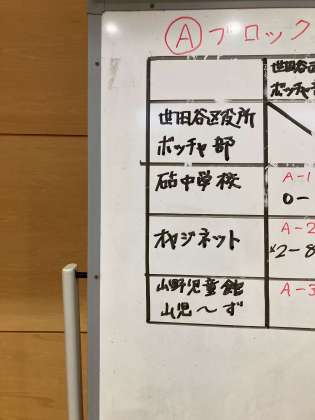 Ⓐブロック
世田谷区
ボッチャ
世田谷区役所
ボッチャ部
砧中学校
A-1
0-
オヤジネット
A-2
2-8
山野児童館
A-3
山児〜ず